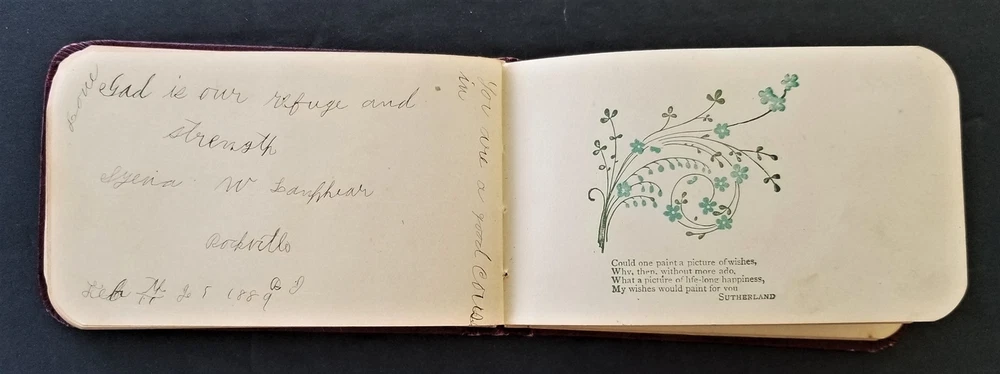 God is our refuge and
strength
W Lanphear
Rockville
Feb 1889
You are a good Cous
in
Could one paint a picture of wishes,
Why, then, without more ado,
What a picture of life-long happiness,
My wishes would paint for you
SUTHERLAND